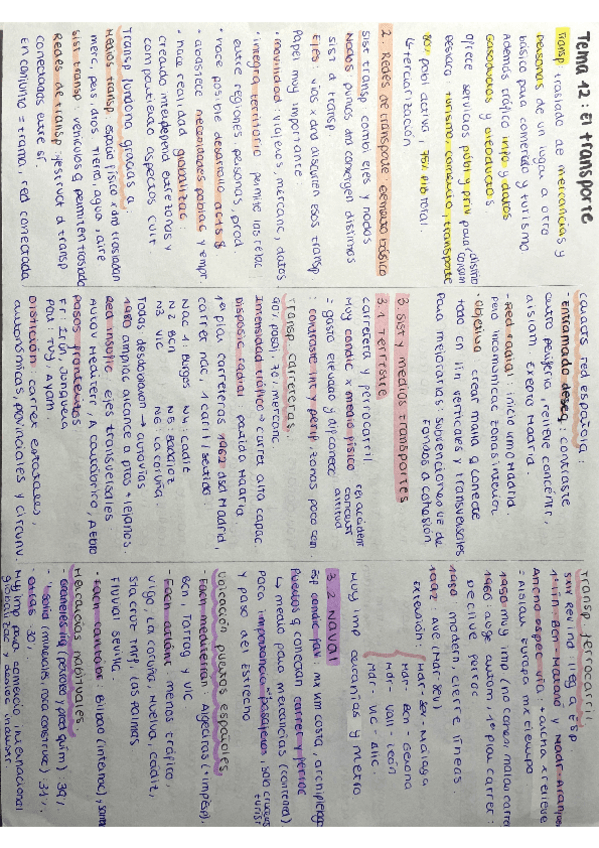 Tema 12: El transporte
Transp traslado de mercancías y
personas de un lugar a otro
básico para comercio y turismo
Además tráfico info y datos
Gasoductos y oleoductos
ofrece servicios públ y priv para
destaca: turismo, comercio y transporte
80% pobl activa, 75% PIB total.
↳ terciarización
2. Redes de transporte elemento básico
sist transp combi ejes y nodos
Nodos puntos dnd convergen distintos
sist d transp
Ejes: vías x dnd discurren esos transp
Papel muy importante
· movilidad: viajeros, mercanc, datos
· integrar territorio permite las relac
entre regiones, personas, prod
· hace posible desarrollo acts $
· abastece necesidades poblac y empr.
· hace realidad globalizac:
creando interdepend entre zonas y
compartiendo aspectos cult
Transp funciona gracias a:
Medios transp. espacio físico dnd trasladan
merc, pers, dtos. Tierra, agua, aire
Sist transp. vehículos q permiten traslado
Redes de transp: estruct d transp
conectados entre sí.
En conjunto = trama, red conectada
caract red española:
- Entramado deseq: contraste
centro periferia, relieve concéntr,
aislam. exento Madrid.
- Red radial: inicio limo Madrid
pero incomunicac zonas interior
- objetivo crear malla q conecte
todo en lín verticales y transversales
Para mejorarlas: subvenciones UE de
Fondos d cohesión
3. sist y medios transportes
3.1 Terrestre
carretera y ferrocarril
Muy condic x medio físico
= gasto elevado y dif conect
: contraste int y perif, zonas poco com.
Transp. carreteras.
90% pasaj, 70% mercanc
intensidad tráfico = carret alta capac.
Disposic radial partida Madrid,
1er plan carreteras 1962 dsd Madrid,
carret nac 1 carril / sentido:
Nac 1: Burgos N4: Cadiz
N2 Bcn N5: Badajoz
N3 Vlc N6: La Coruña
Todas desdoblaron → autovías
1980 ampliac alcance a ptos + lejanos.
Red insufic ejes transversales
Autov Mediterr, A cantábrico, A Ebro
pasos fronterizos
Fr: Irún, Junquera
Pou: Tuy, Ayam
Distinción carret estatales,
autonómicas, provinciales y circunv.
Transp ferrocarril.
1ª lín Bcn - Mataró y Madr-Aranjuez
Ancho espec vía. + ancha x relieve
= aislan Europa md tiempo
1950 muy imp (no comerc malas carret
1960: auge autom, 1er plan carret:
Declive ferroc
1980 modern, cierre líneas
1992 AVE (Madr-Sev)
Extensión: Mdr-Sev-Málaga
Mdr-Bcn-Gerona
Mdr-Vall-León
Mdr-Vlc-Alic.
Muy imp cercanías y metro
3.2 Naval
Esp condic fav: mx km costa, archipiélagos
Puertos q conectan carret y ferroc
↳ medio para mercancías (contened).
Poca importancia en pasajeros, solo cruceros
y paso del Estrecho
ubicación puertos españoles
- Fach mediterran. Algeciras (+ imp esp).
Bcn, Tarrag y Vlc
- Fach atlánt menos tráfico,
Vigo, La Coruña, Huelva, Cádiz,
Sta cruz Tnf, Las Palmas
Fluvial Sevilla
- Fach cantabr: Bilbao (interno),
Mercancías habituales
· Graneles líq (petróleo y prod quím) 39%.
· Otras 30%,
Muy imp para comercio internacional
globalizac y deslocc industr.